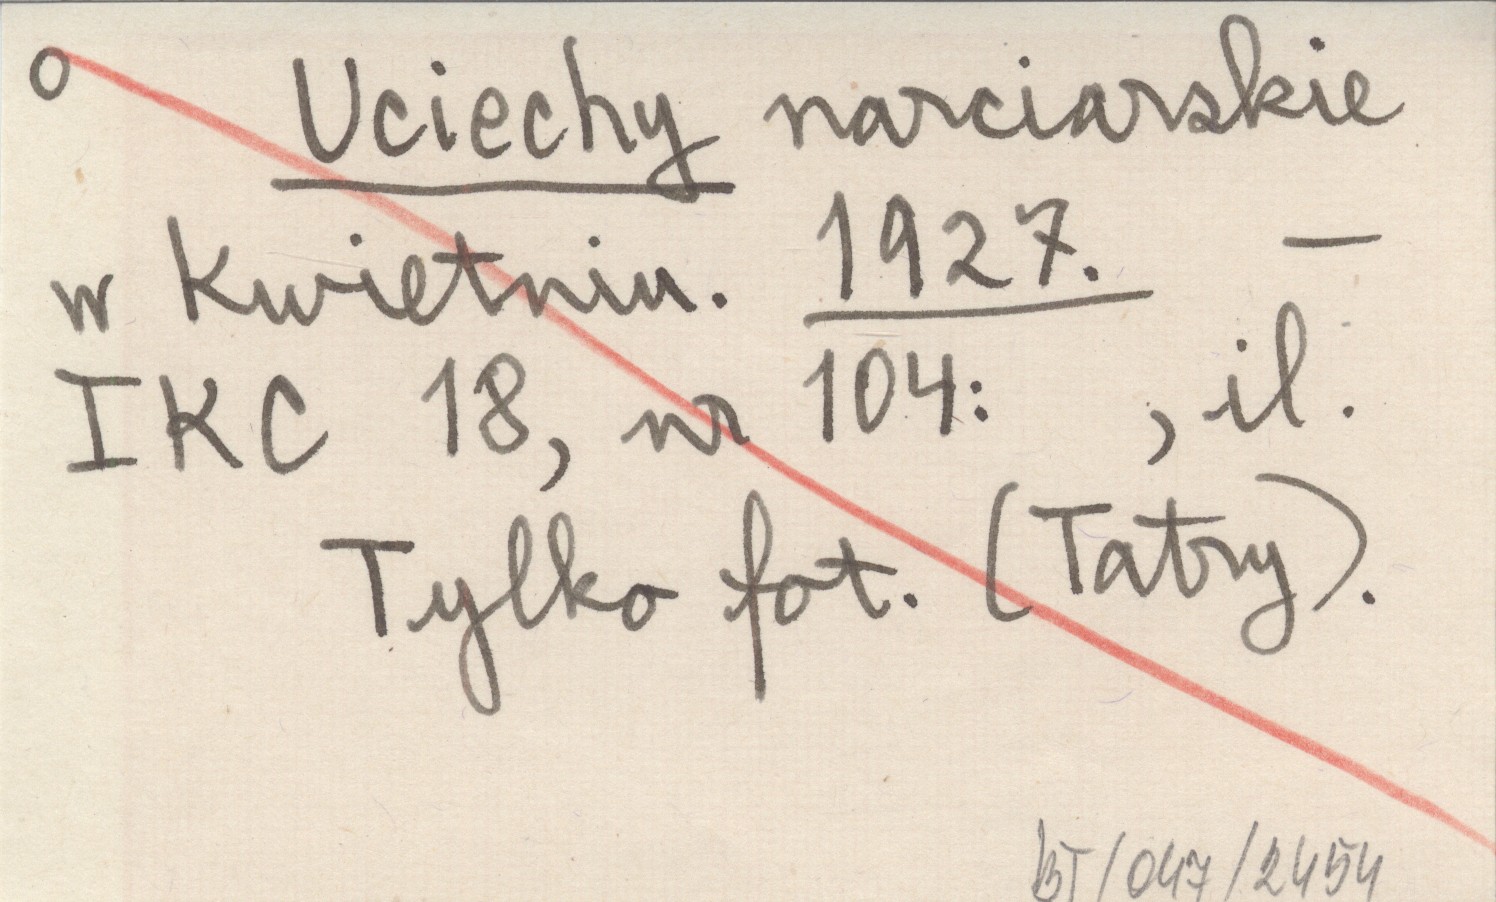 o Uciechy narciarskie
w kwietniu. 1927. —
IKC 18, nr 104: , il.
Tylko fot. (Tatry).
BT/047/2454